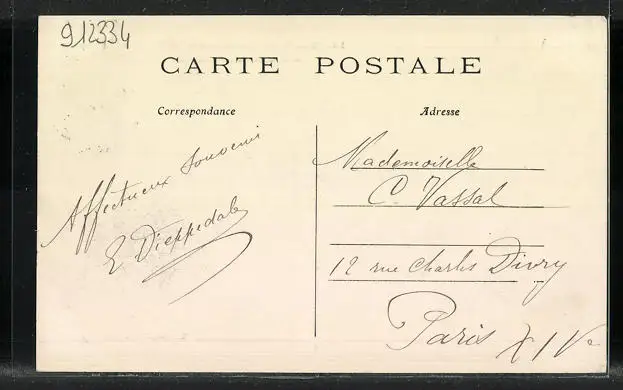 912334
CARTE POSTALE
Correspondance
Adresse
Affectueux Souvenir
E Dieppedale
Mademoiselle
C. Vassal
12 rue Charles Divry
Paris XIVe